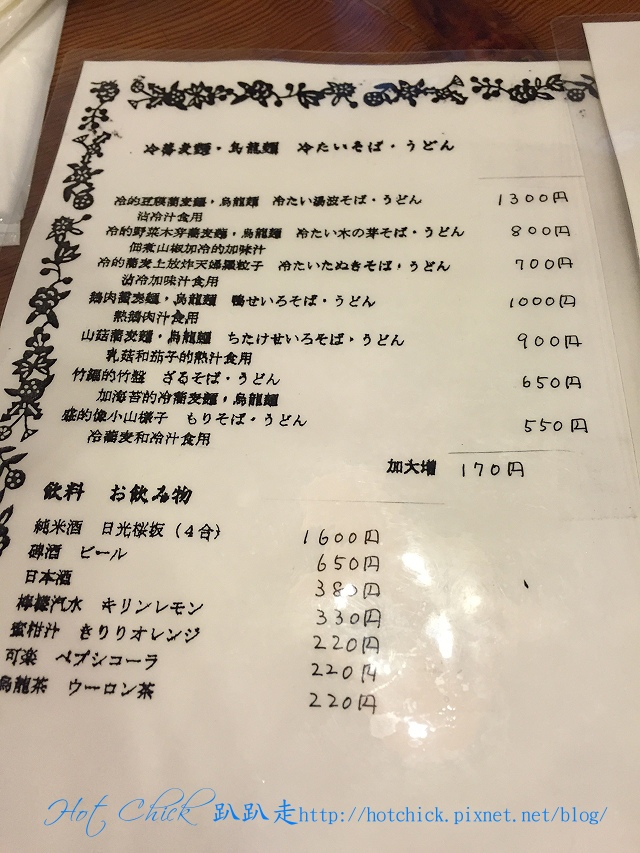 冷蕎麦麵·烏龍麵 冷たいそば·うどん
冷的豆瑛蕎麦麵,烏龍麵 冷たい湯波そば·うどん 1300円
沾冷汁食用
冷的野菜木芽蕎麦麵,烏龍麵 冷たい木の芽そば·うどん 800円
佃煮山椒加冷的加味汁
冷的蕎麦上放炸天婦羅粒子 冷たいたぬきそば,うどん 700円
沾冷加味汁食用
鵝肉蕎麦麵,烏龍麵 鴨せいろそば·うどん 1000円
熱鵝肉汁食用
山菇蕎麦麵·烏龍麵 ちたけせいろそば,うどん 900円
乳菇和茄子的熱汁食用
竹編的竹盤 ざるそば·うどん 650円
加海苔的冷蕎麦麵,烏龍麵
盛的像小山様子 もりそば·うどん 550円
冷蕎麦和冷汁食用
加大增 170円
飲料 お飲み物
純米酒 日光桜坂(4合) 1600円
啤酒 ビール 650円
日本酒 380円
檸檬汽水 キリンレモン 330円
蜜柑汁 きりりオレンジ 220円
可楽 ペプシコーラ 220円
烏龍茶 ウーロン茶 220円
Hot Chick 趴趴走http://hotchick.pixnet.net/blog/